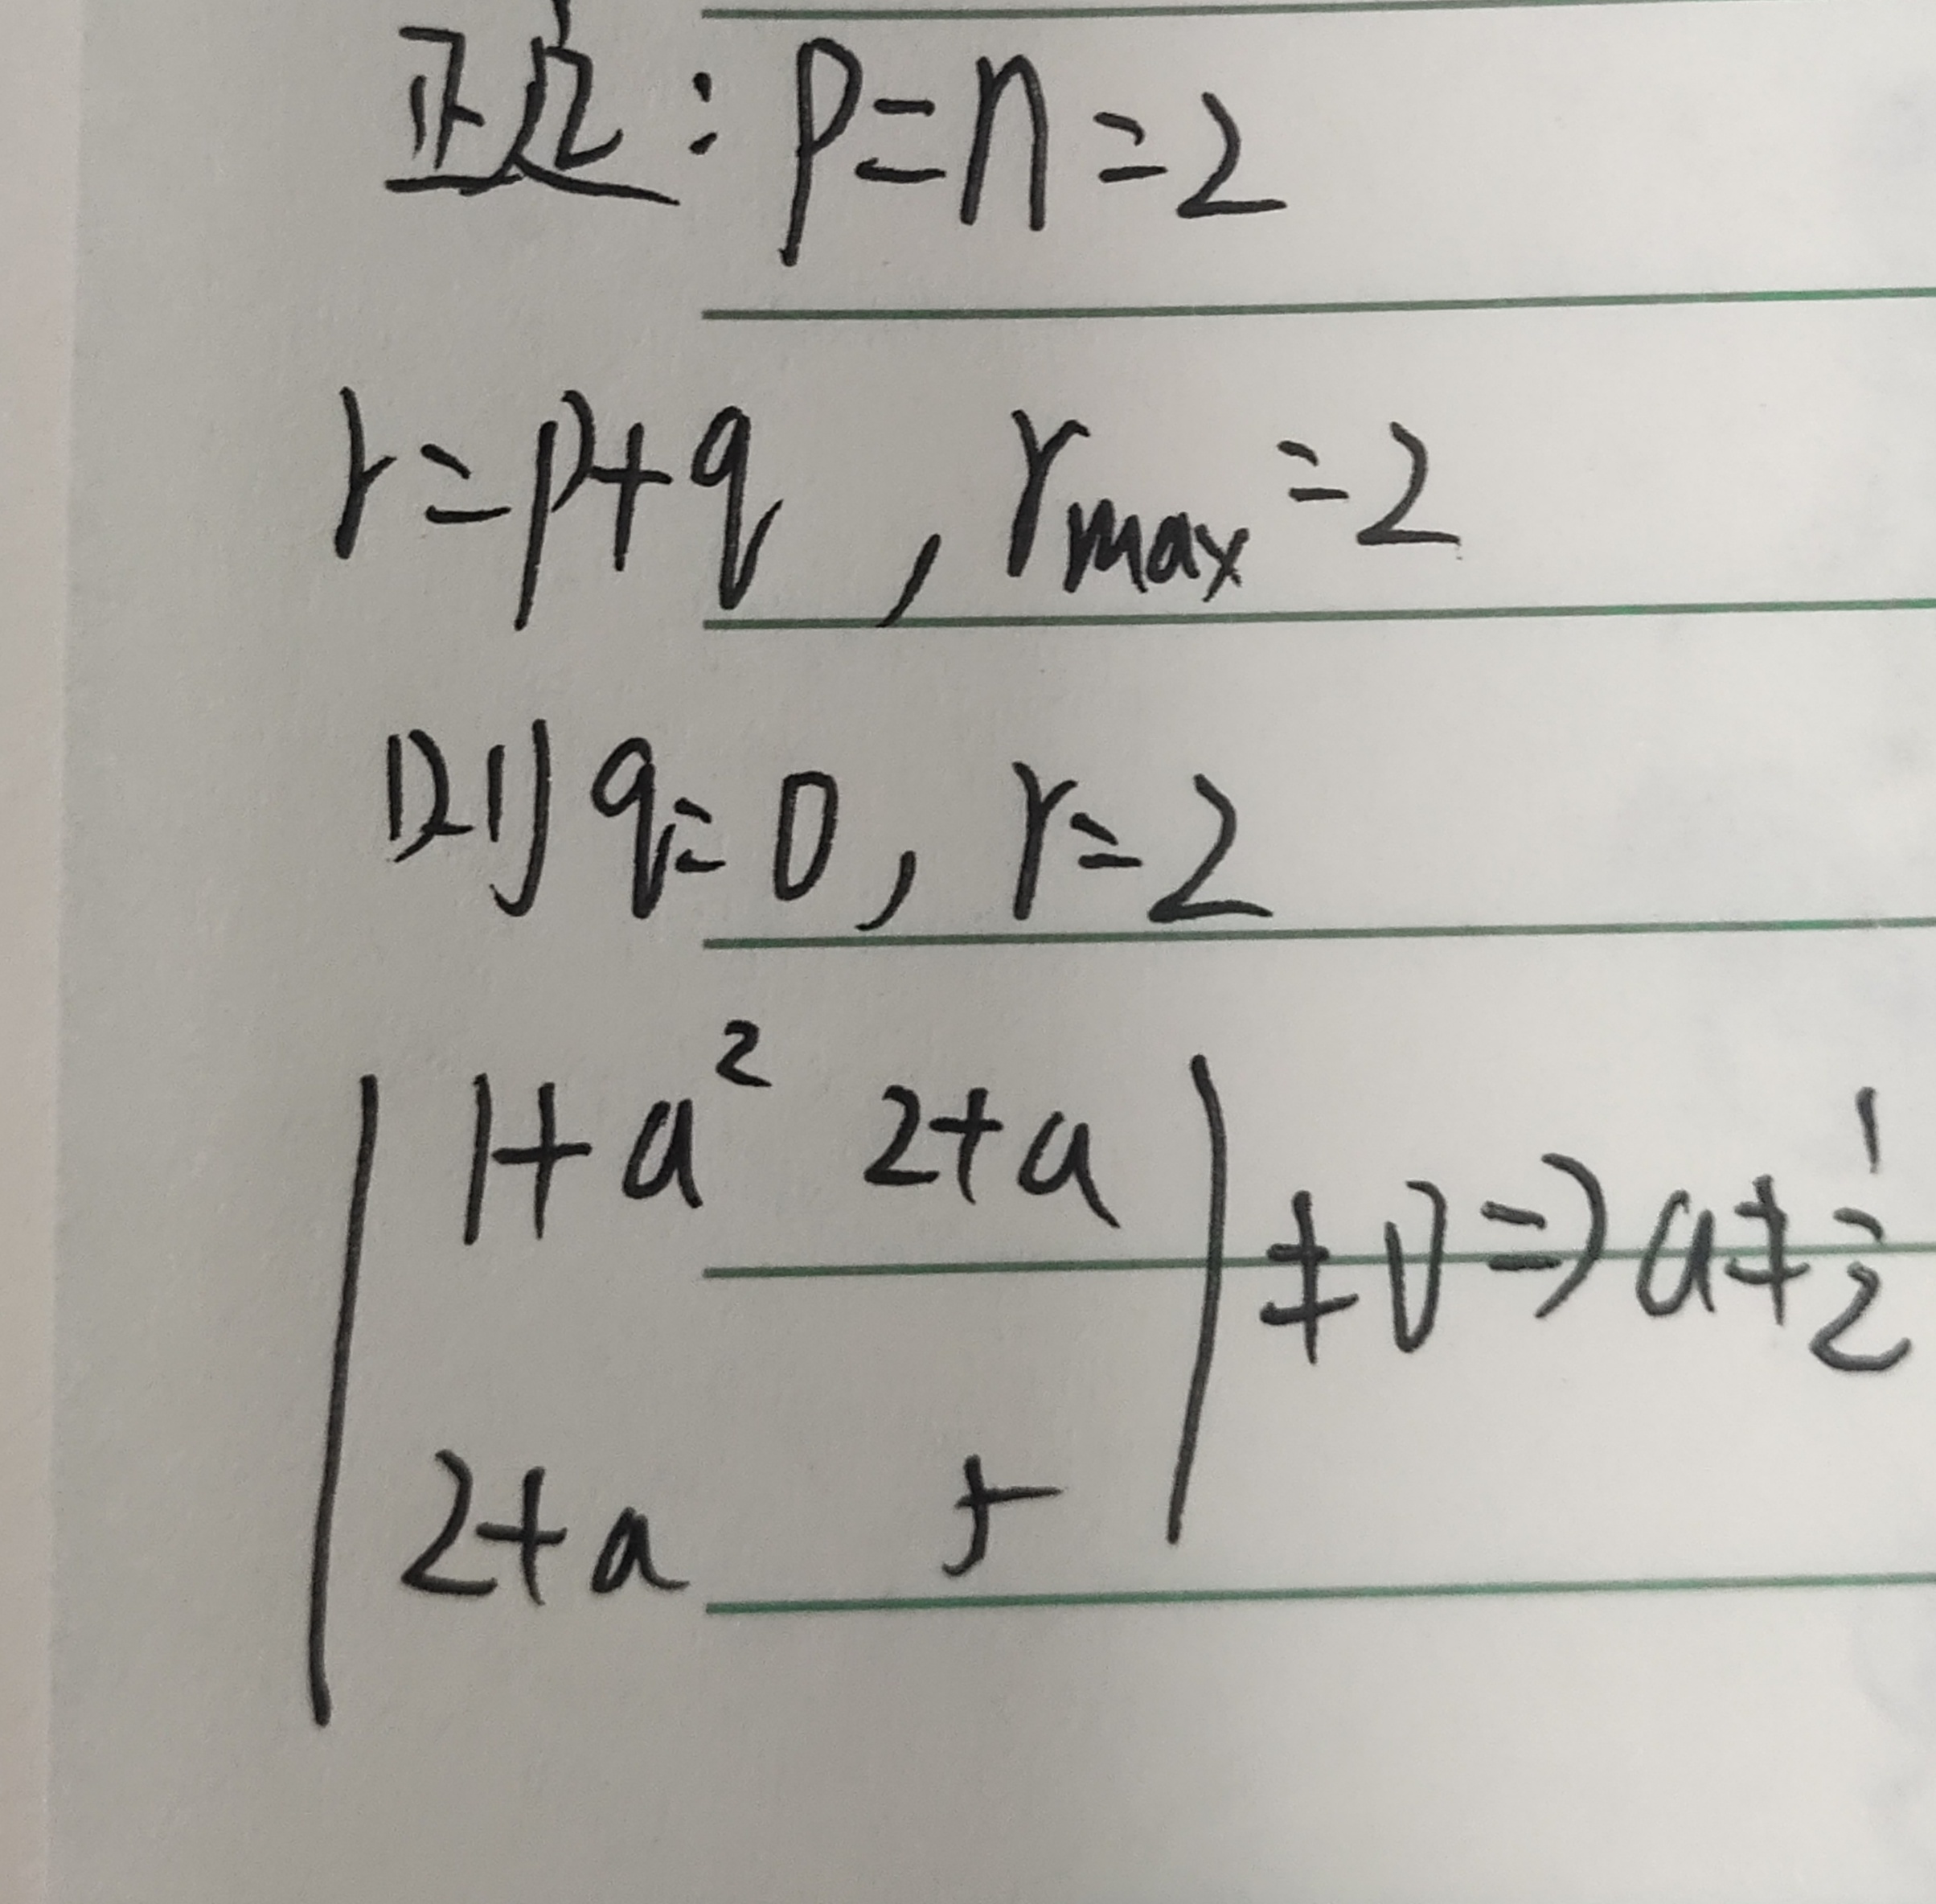 正定：p=n=2
r=p+q，r_max=2
则q=0，r=2
|1+a² 2+a| ≠0⇒a≠1/2
|2+a 5|